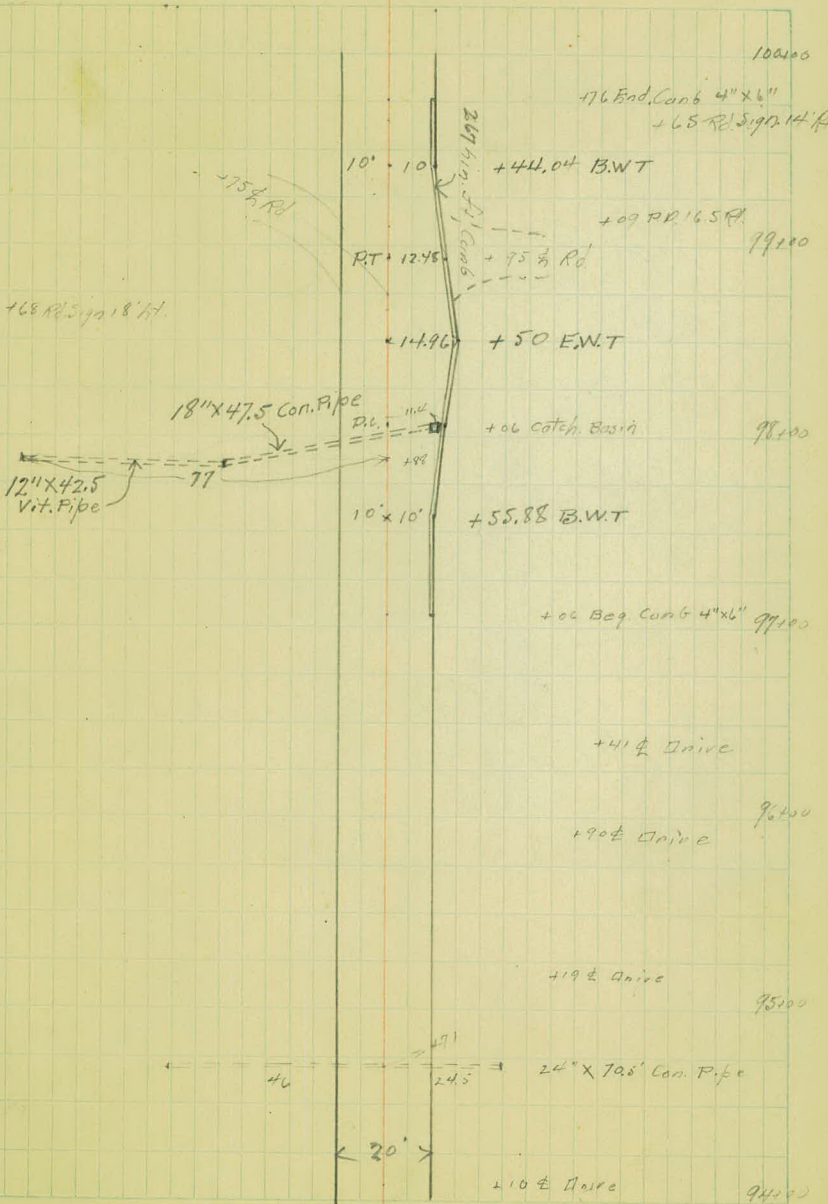 100+00
+76 End. Curb 4" X 6"
+65 Rd. Sign. 14' R
10' 10 +44.04 B.W.T
267 Lin. Ft. Curb
+75 ℄ Rd
+09 P.P. 16.5 Rt.
99+00
P.T 12.48 +95 ℄ Rd
+68 Rd. Sign 18' Lt.
14.96 +50 E.W.T
18" X 47.5 Con. Pipe
P.C. 11.4 +06 Catch. Basin
98+00
+88
12" X 42.5
Vit. Pipe
77
10' x 10' +55.88 B.W.T
+06 Beg. Curb 4"x6"
97+00
+41 ℄ Drive
96+00
+90 ℄ Drive
+19 ℄ Drive
95+00
+71
46 24.5 24" X 70.5' Con. Pipe
20'
+10 ℄ Drive
94+00